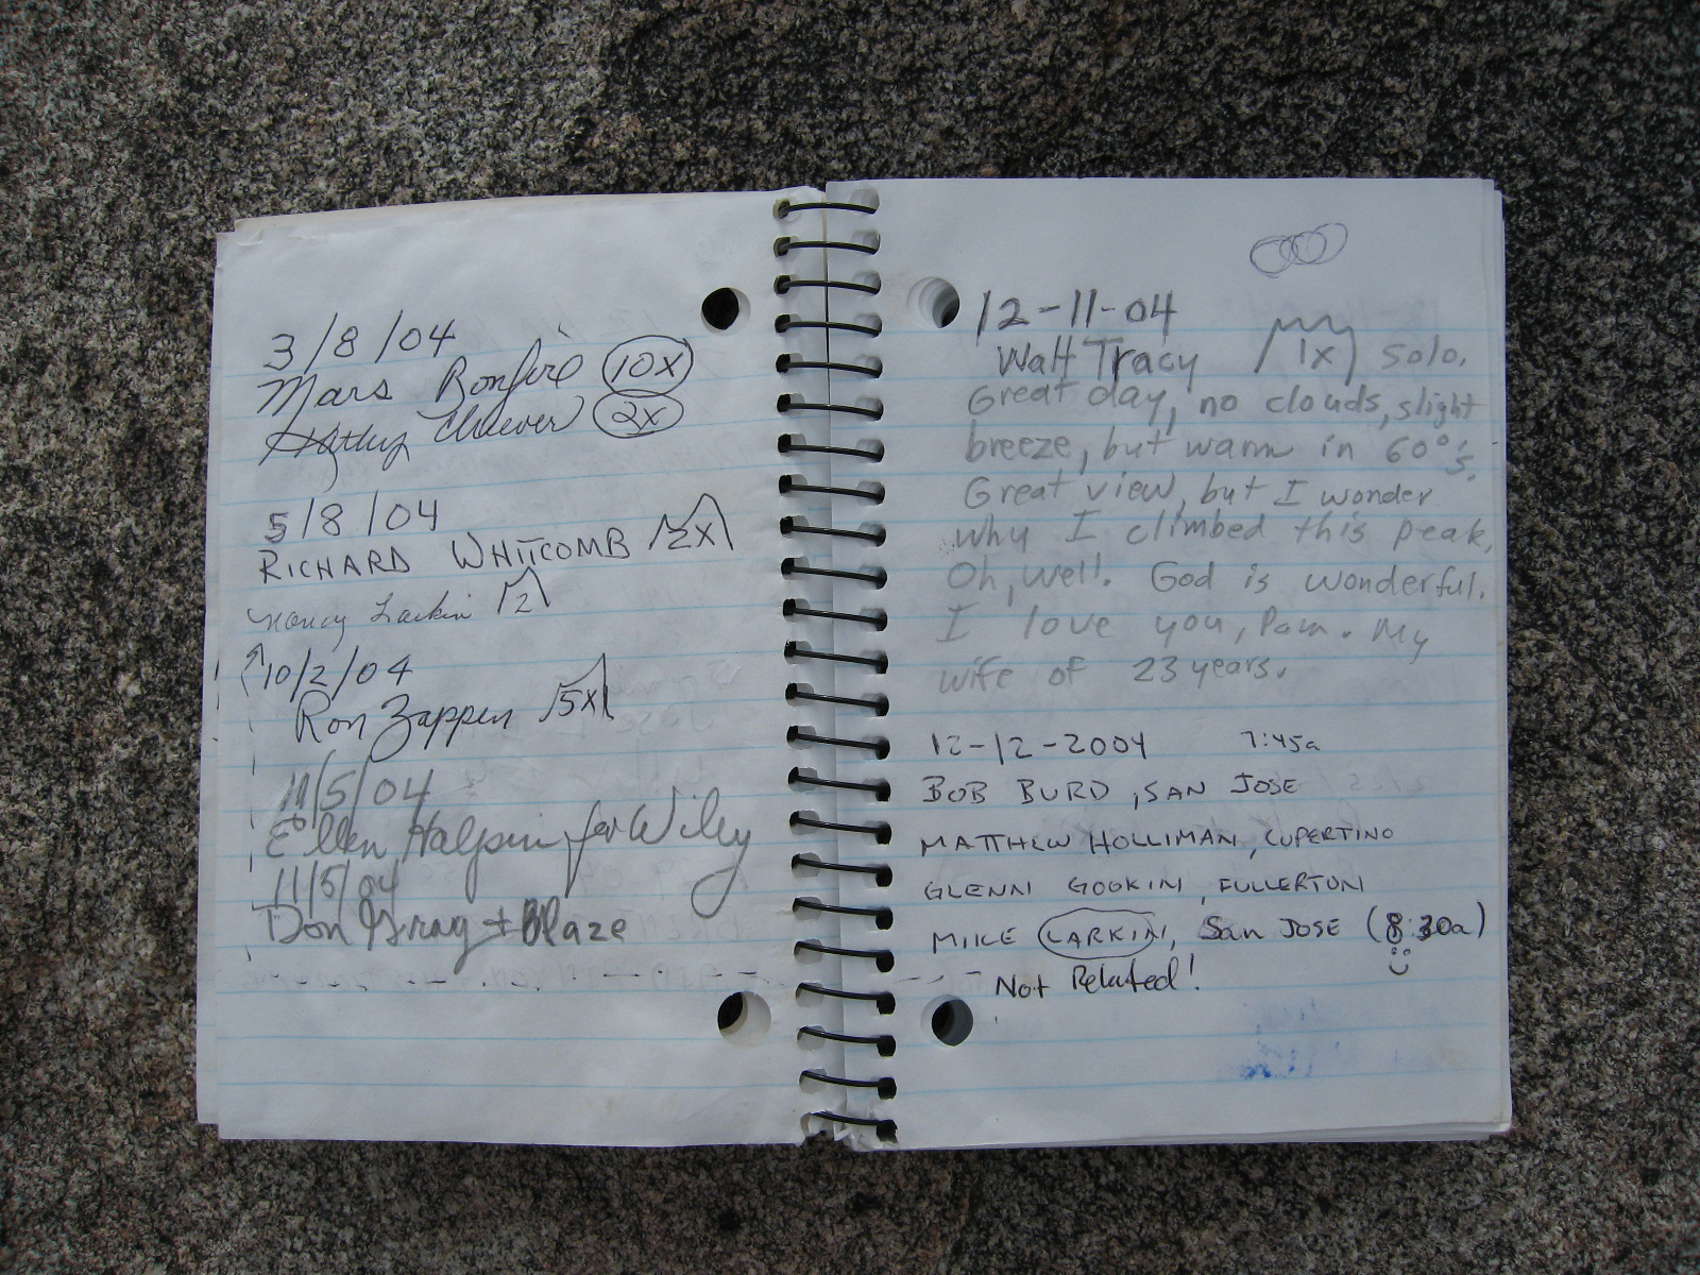 3/8/04
Mars Bonfire 10x
Kathy Cheever 2x
5/8/04
RICHARD WHITCOMB 2X
Nancy Larkin 2
10/2/04
Ron Zappen 5x
11/5/04
Ellen Halpin for Wiley
11/5/04
Don Gray + Blaze
12-11-04
Walt Tracy 1x solo.
Great day, no clouds, slight
breeze, but warm in 60°'s.
Great view, but I wonder
why I climbed this peak.
Oh, well. God is wonderful.
I love you, Pam. My
wife of 23 years.
12-12-2004 7:45a
BOB BURD, SAN JOSE
MATTHEW HOLLIMAN, CUPERTINO
GLENN GOOKIN, FULLERTON
MIKE LARKIN, San JOSE (8:30a)
Not Related!